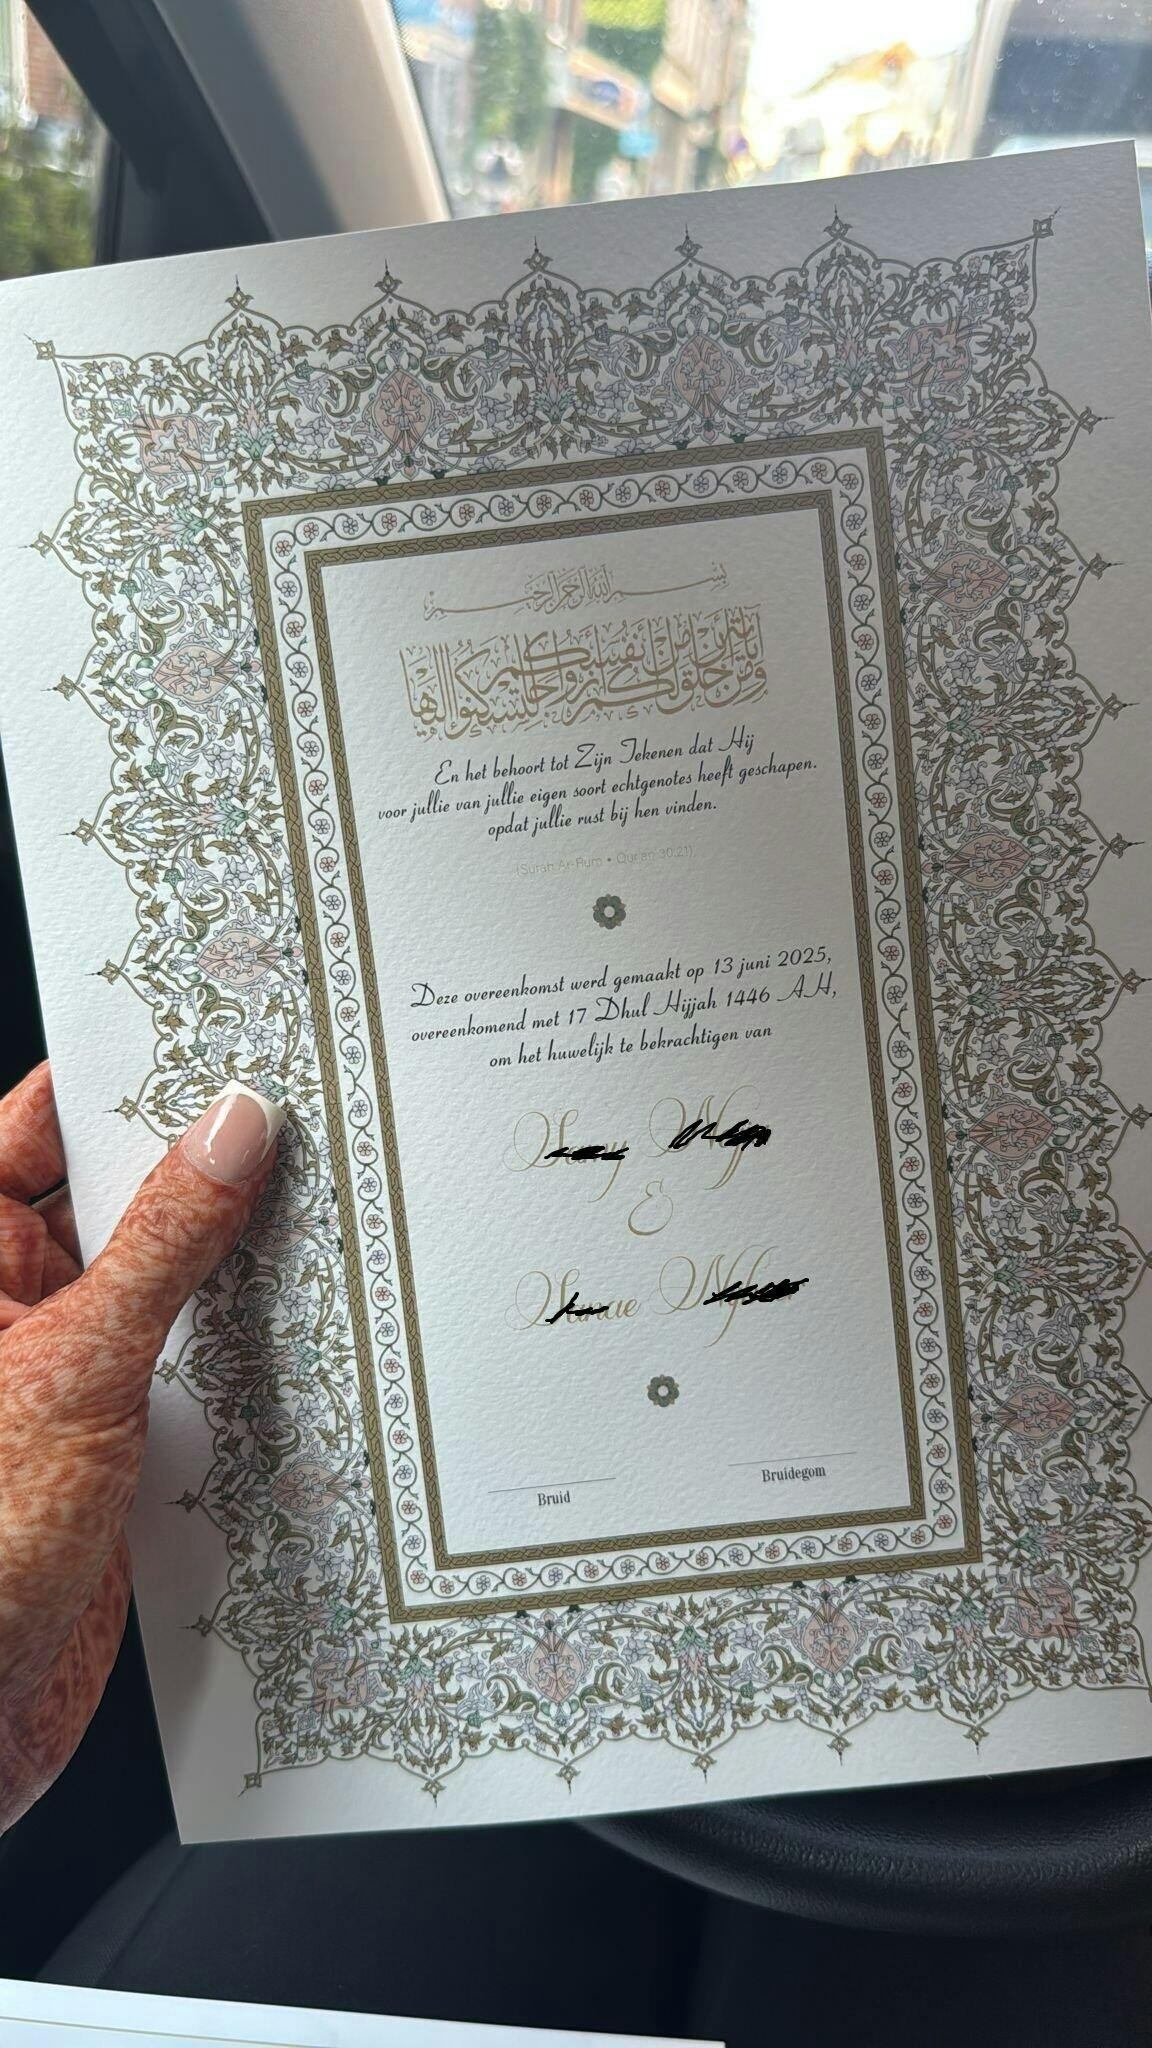 بسم الله الرحمن الرحيم
ومن آياته أن خلق لكم من أنفسكم أزواجا لتسكنوا إليها
En het behoort tot Zijn Tekenen dat Hij
voor jullie van jullie eigen soort echtgenotes heeft geschapen.
opdat jullie rust bij hen vinden.
(Surah Ar-Rum • Qur'an 30:21)
Deze overeenkomst werd gemaakt op 13 juni 2025,
overeenkomend met 17 Dhul Hijjah 1446 AH,
om het huwelijk te bekrachtigen van
&
Bruid
Bruidegom